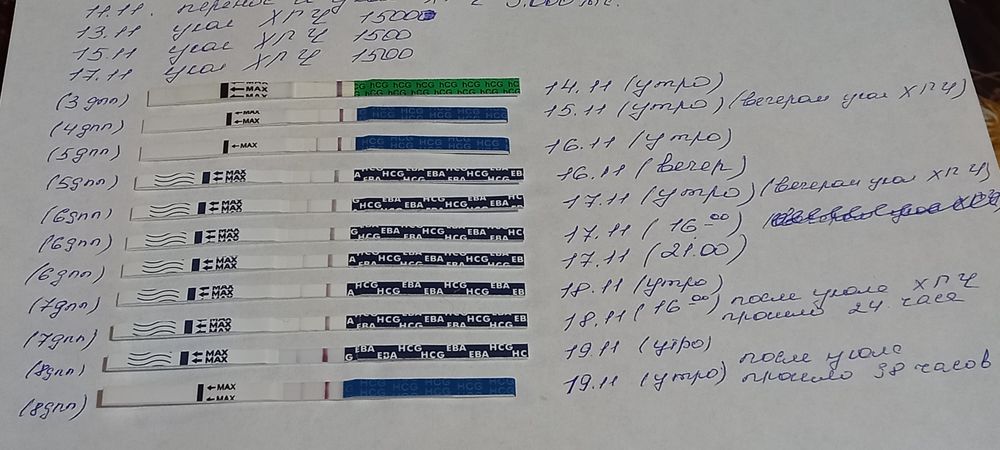 11.11. перенос и укол ХГЧ 5.000
13.11 укол ХГЧ 1500
15.11 укол ХГЧ 1500
17.11 укол ХГЧ 1500
(3дпп) MAX MAX hCG hCG hCG hCG hCG 14.11 (утро)
(4дпп) MAX HCG HCG HCG 15.11 (утро) (вечером укол ХГЧ)
(5дпп) MAX HCG HCG HCG 16.11 (утро)
(5дпп) MAX MAX HCG EBA HCG EBA 16.11 (вечер)
(6дпп) MAX MAX HCG EBA HCG EBA 17.11 (утро) (вечером укол ХГЧ)
(6дпп) MAX MAX EBA HCG EBA HCG EBA 17.11 (16-00)
(6дпп) MAX MAX EBA HCG EBA HCG 17.11 (21.00)
(7дпп) MAX MAX EBA HCG EBA HCG EBA 18.11 (утро)
(7дпп) MAX MAX EBA HCG EBA HCG EBA 18.11 (16-00) после укола ХГЧ прошло 24 часа
(8дпп) MAX MAX EBA HCG EBA HCG EBA HC 19.11 (утро)
(8дпп) MAX MAX HCG HCG HCG 19.11 (утро) после укола прошло 38 часов